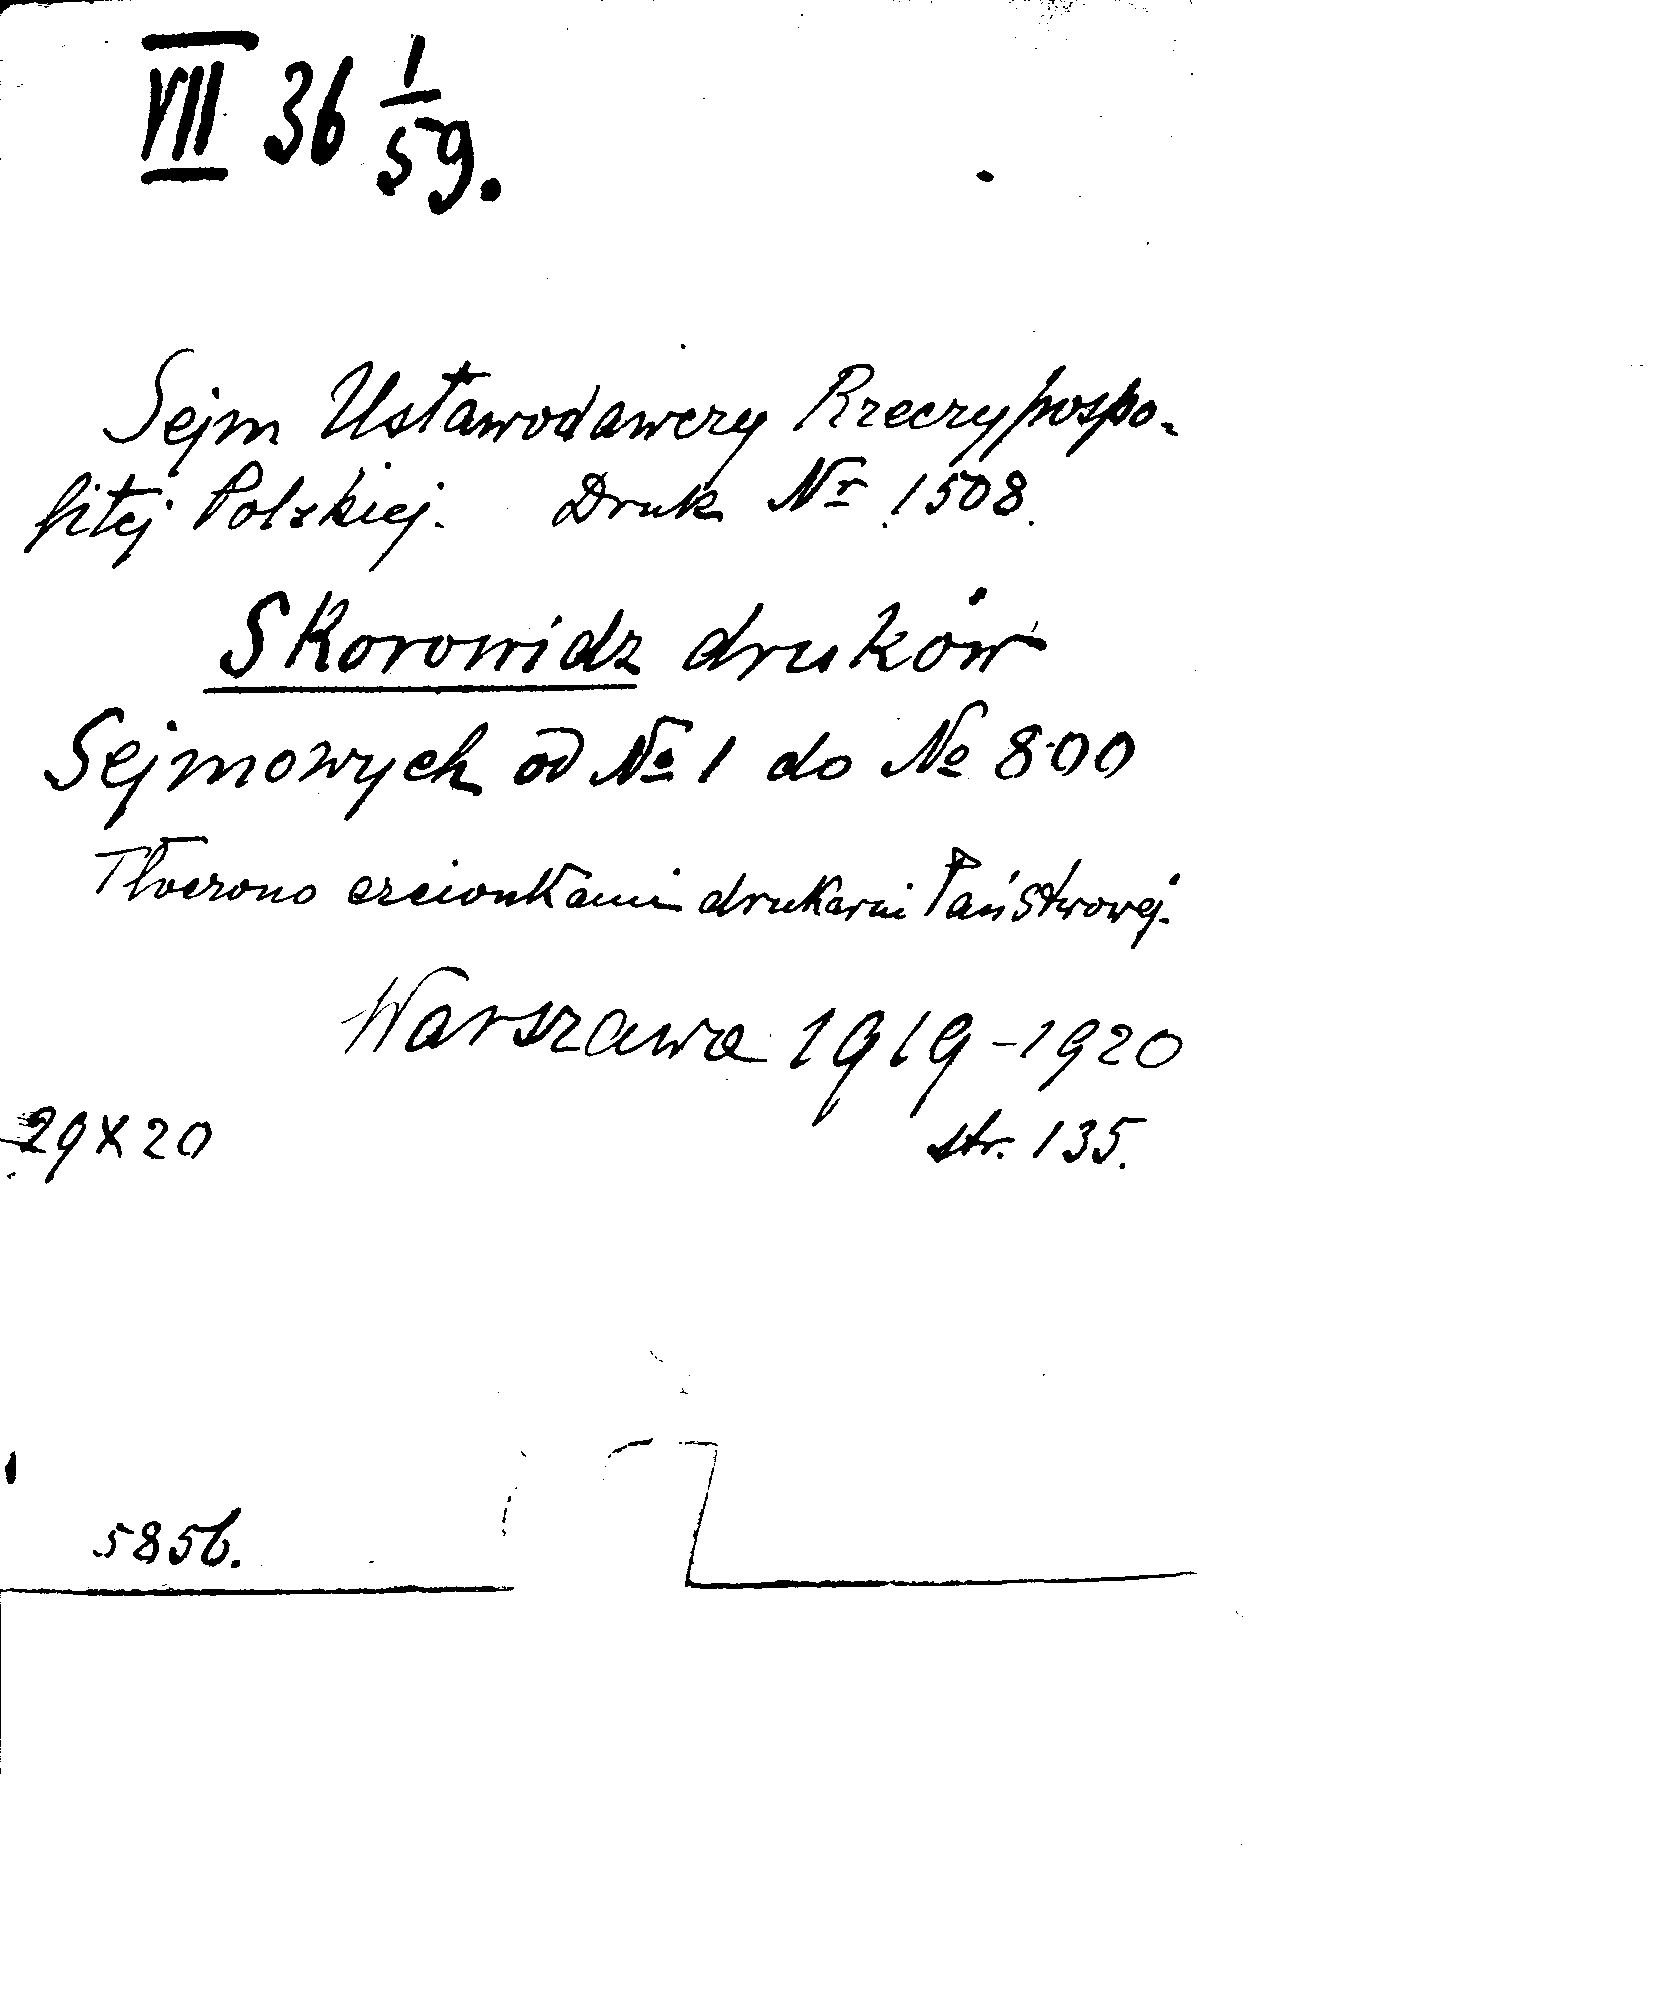 VII 36 1/59.
Sejm Ustawodawczy Rzeczypospo-
litej Polskiej. Druk Nr 1508.
Skorowidz druków
Sejmowych od № 1 do № 800
Tłoczono czcionkami drukarni Państwowej.
Warszawa 1919-1920
29x20 str. 135.
5856.